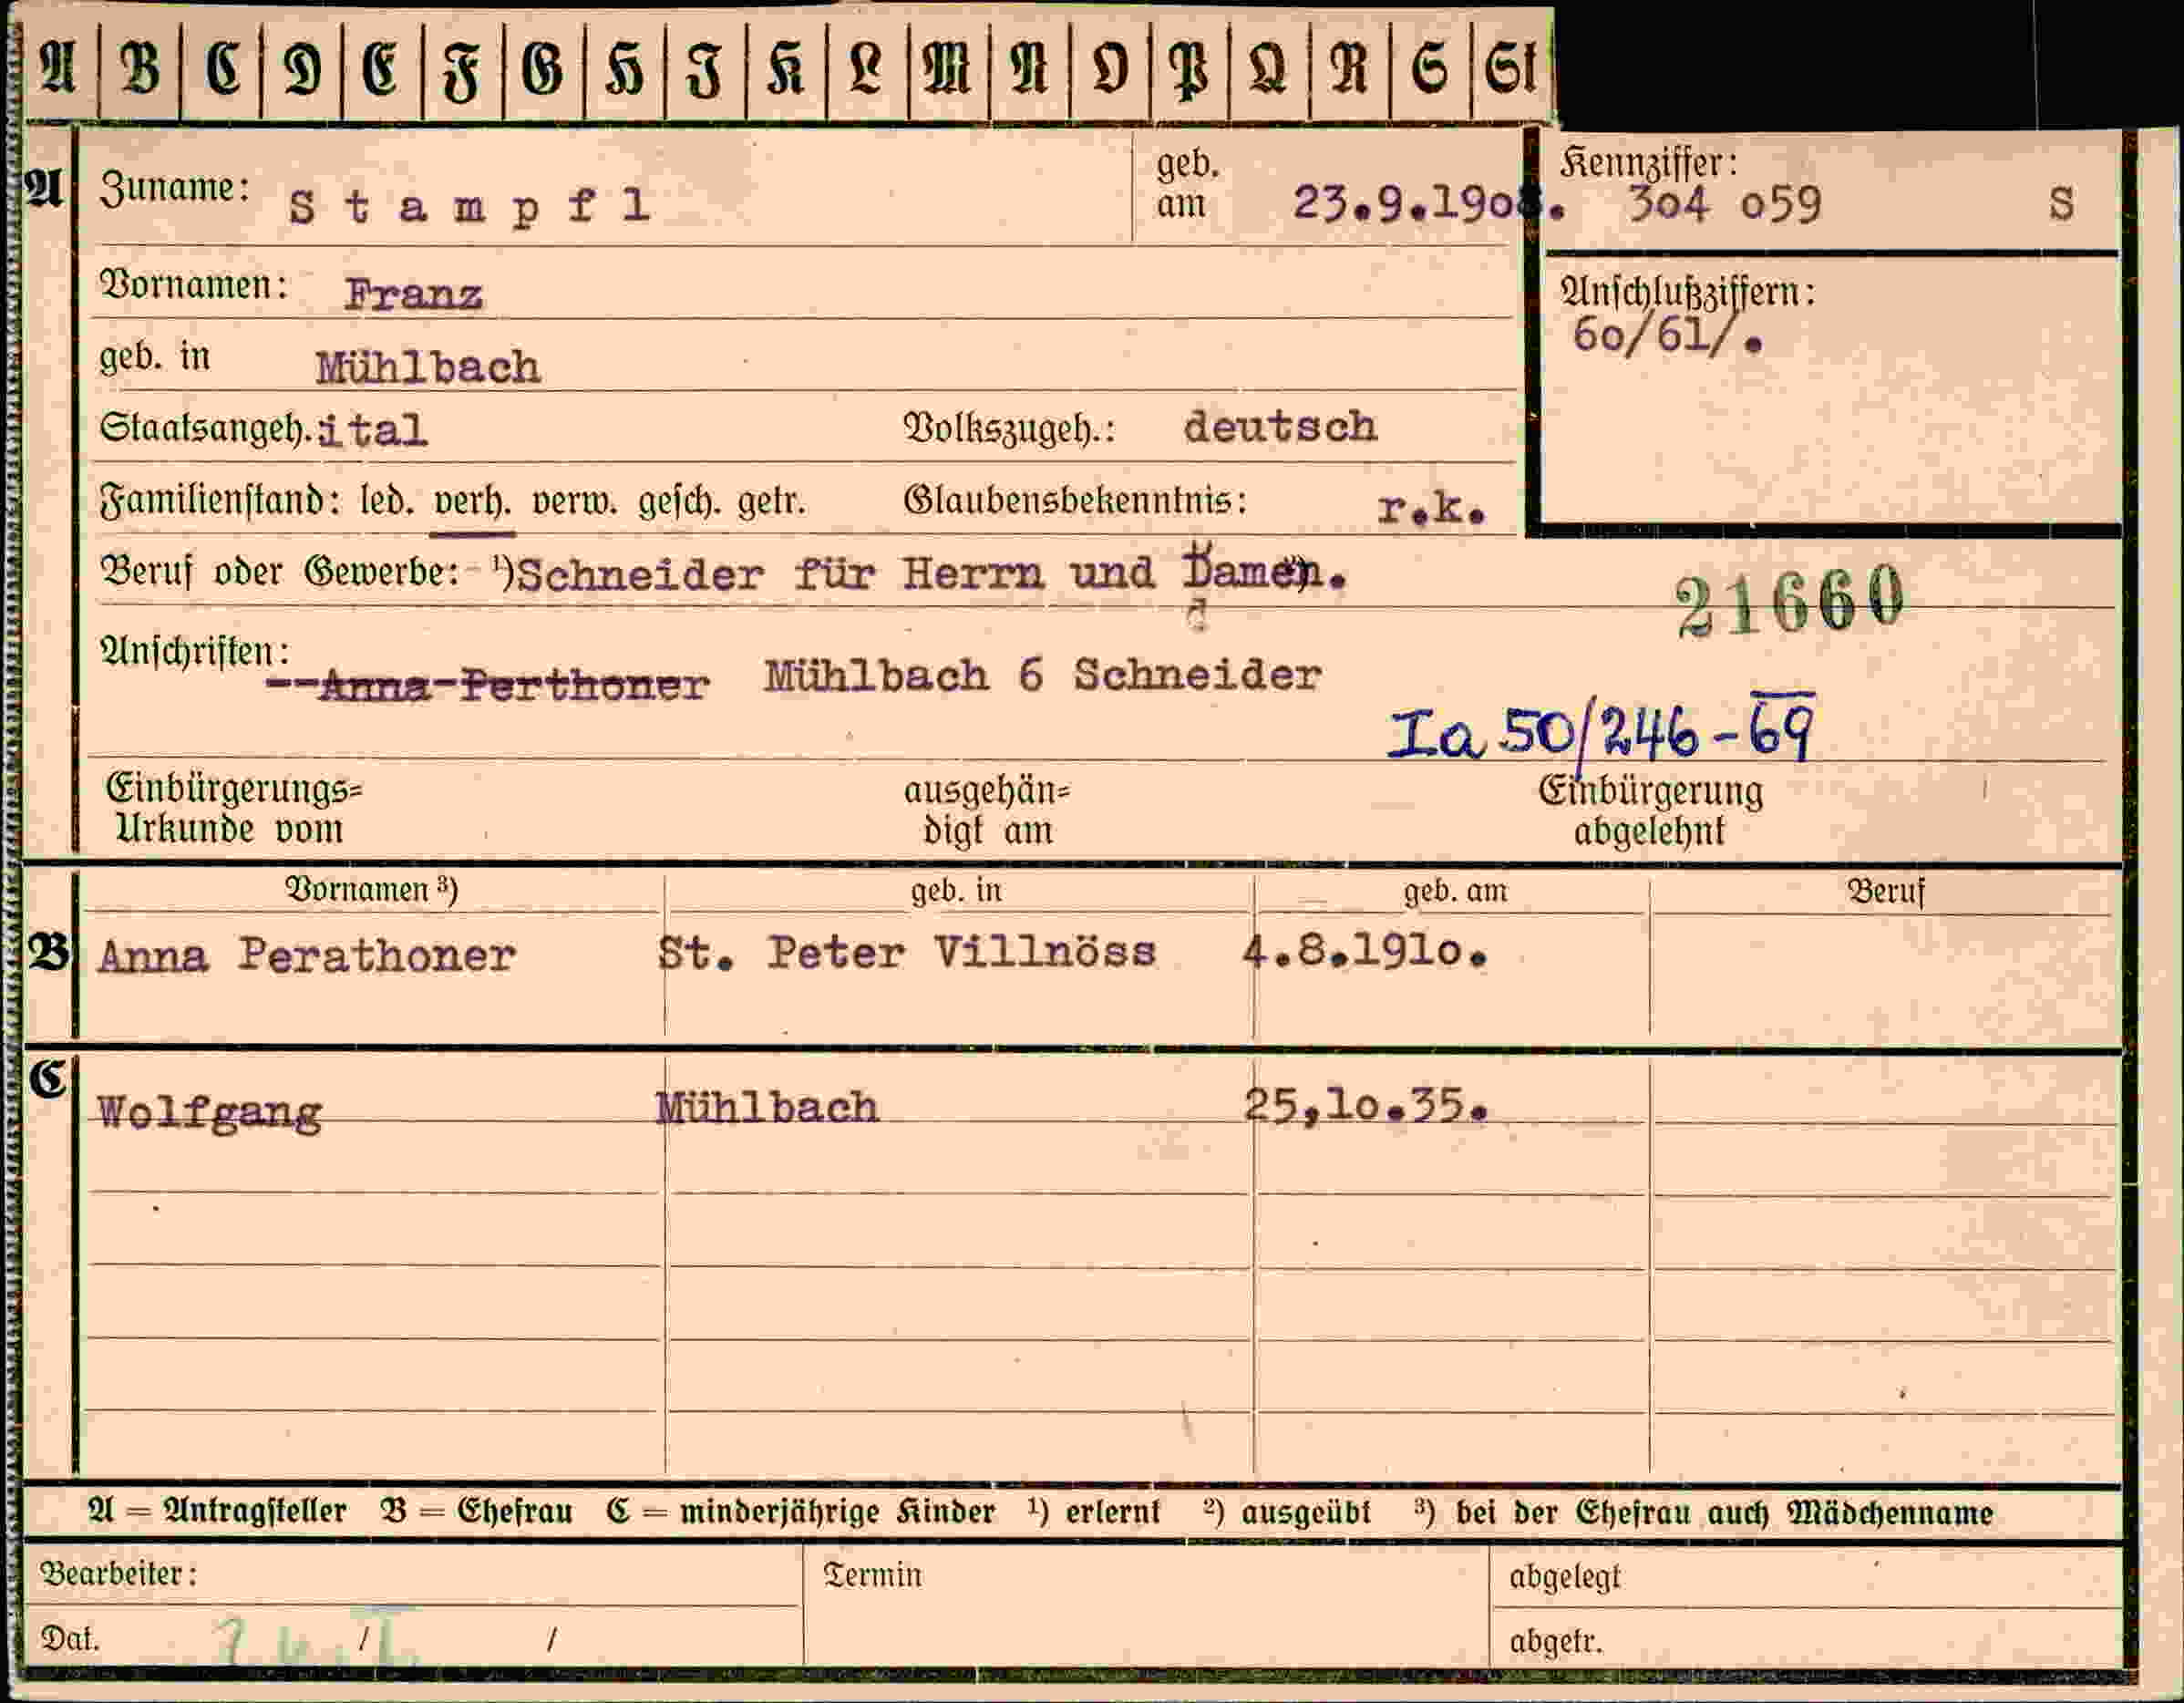 A B C D E F G H J K L M N O P Q R S St
A Zuname: Stampfl geb. am 23.9.190 . Kennziffer: 3o4 o59 S
Vornamen: Franz Anschlußziffern:
60/61/.
geb. in Mühlbach
Staatsangeh. ital Volkszugeh.: deutsch
Familienstand: led. verh. verw. gesch. getr. Glaubensbekenntnis: r.k.
Beruf oder Gewerbe: ¹)Schneider für Herrn und Damen.
21660
Anschriften: --Anna-Perthoner Mühlbach 6 Schneider
Ia 50/246-69
Einbürgerungs= ausgehän= Einbürgerung
Urkunde vom digt am abgelehnt
Vornamen ³) geb. in geb. am Beruf
B Anna Perathoner St. Peter Villnöss 4.8.191o.
C Wolfgang Mühlbach 25,1o.35.
A = Antragsteller B = Ehefrau C = minderjährige Kinder ¹) erlernt ²) ausgeübt ³) bei der Ehefrau auch Mädchenname
Bearbeiter: Termin abgelegt
Dat. / / abgetr.